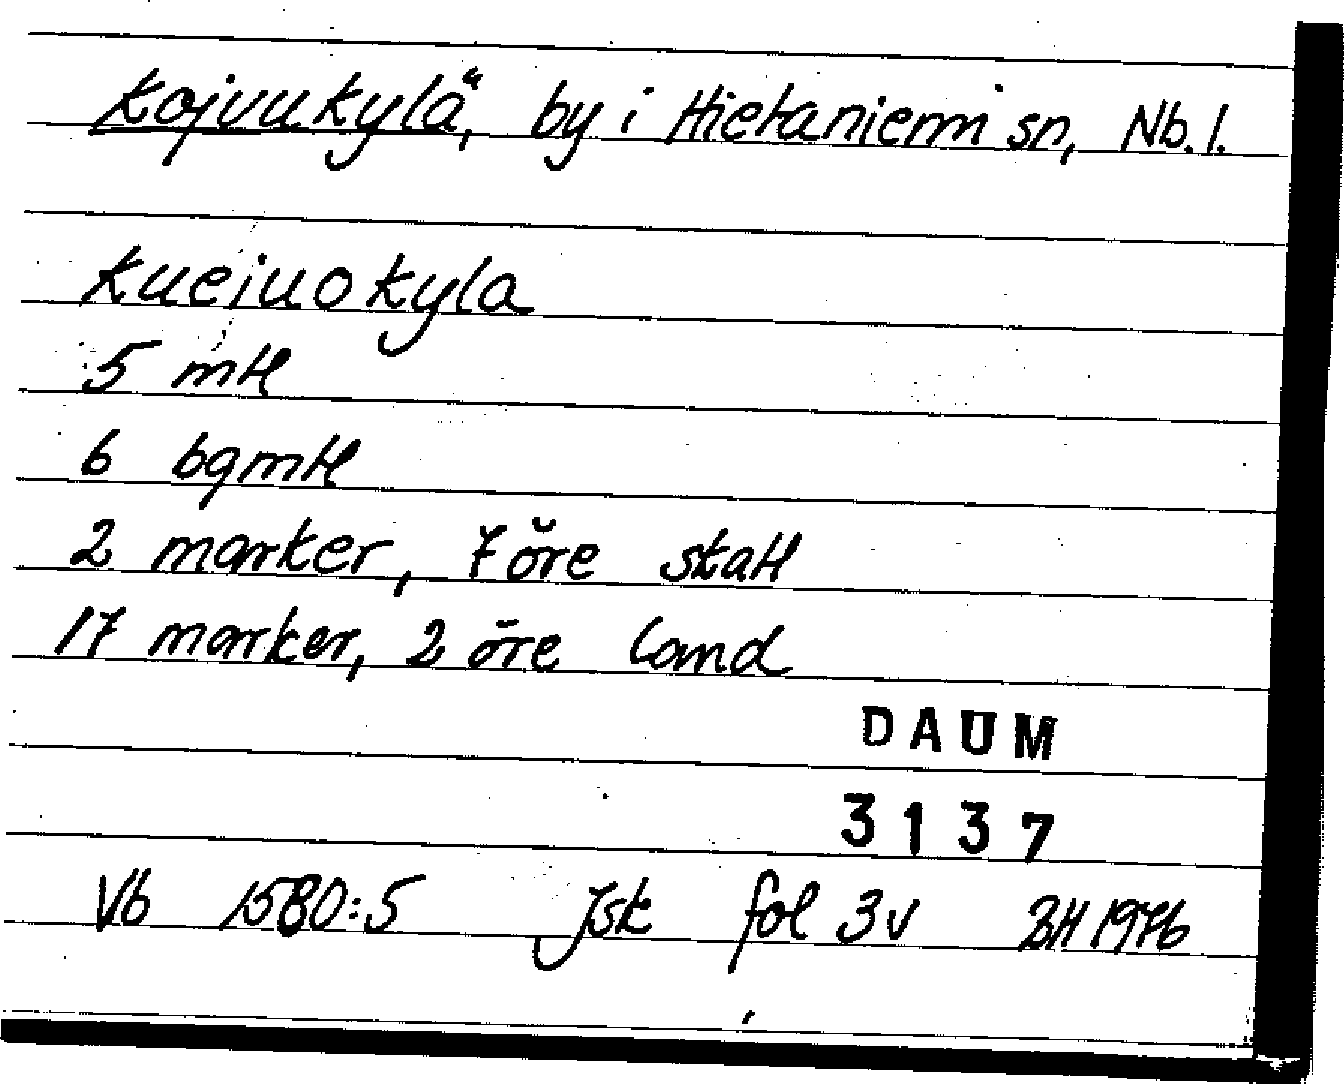 Kojvukylä, by i Hietaniemi sn, Nb. l.
Kueiuokyla
5 mtl
6 bgmtl
2 marker, 7 öre skatt
17 marker, 2 öre land
DAUM
3137
Vb 1580:5 Jsk fol 3v BH 1976